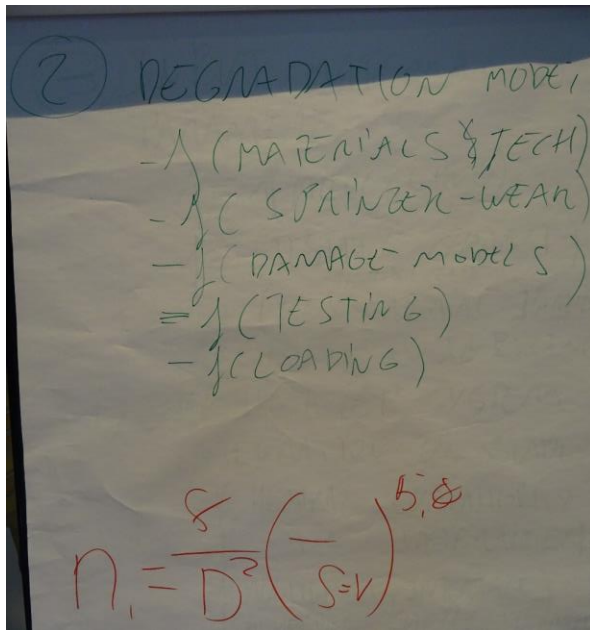 2 DEGRADATION MODEL
- f (MATERIALS & TECH)
- f ( SPRINGER-WEAR)
- f (DAMAGE MODELS)
= f (TESTING)
- f (LOADING)
n₁ = 8/D² (—/S=V)